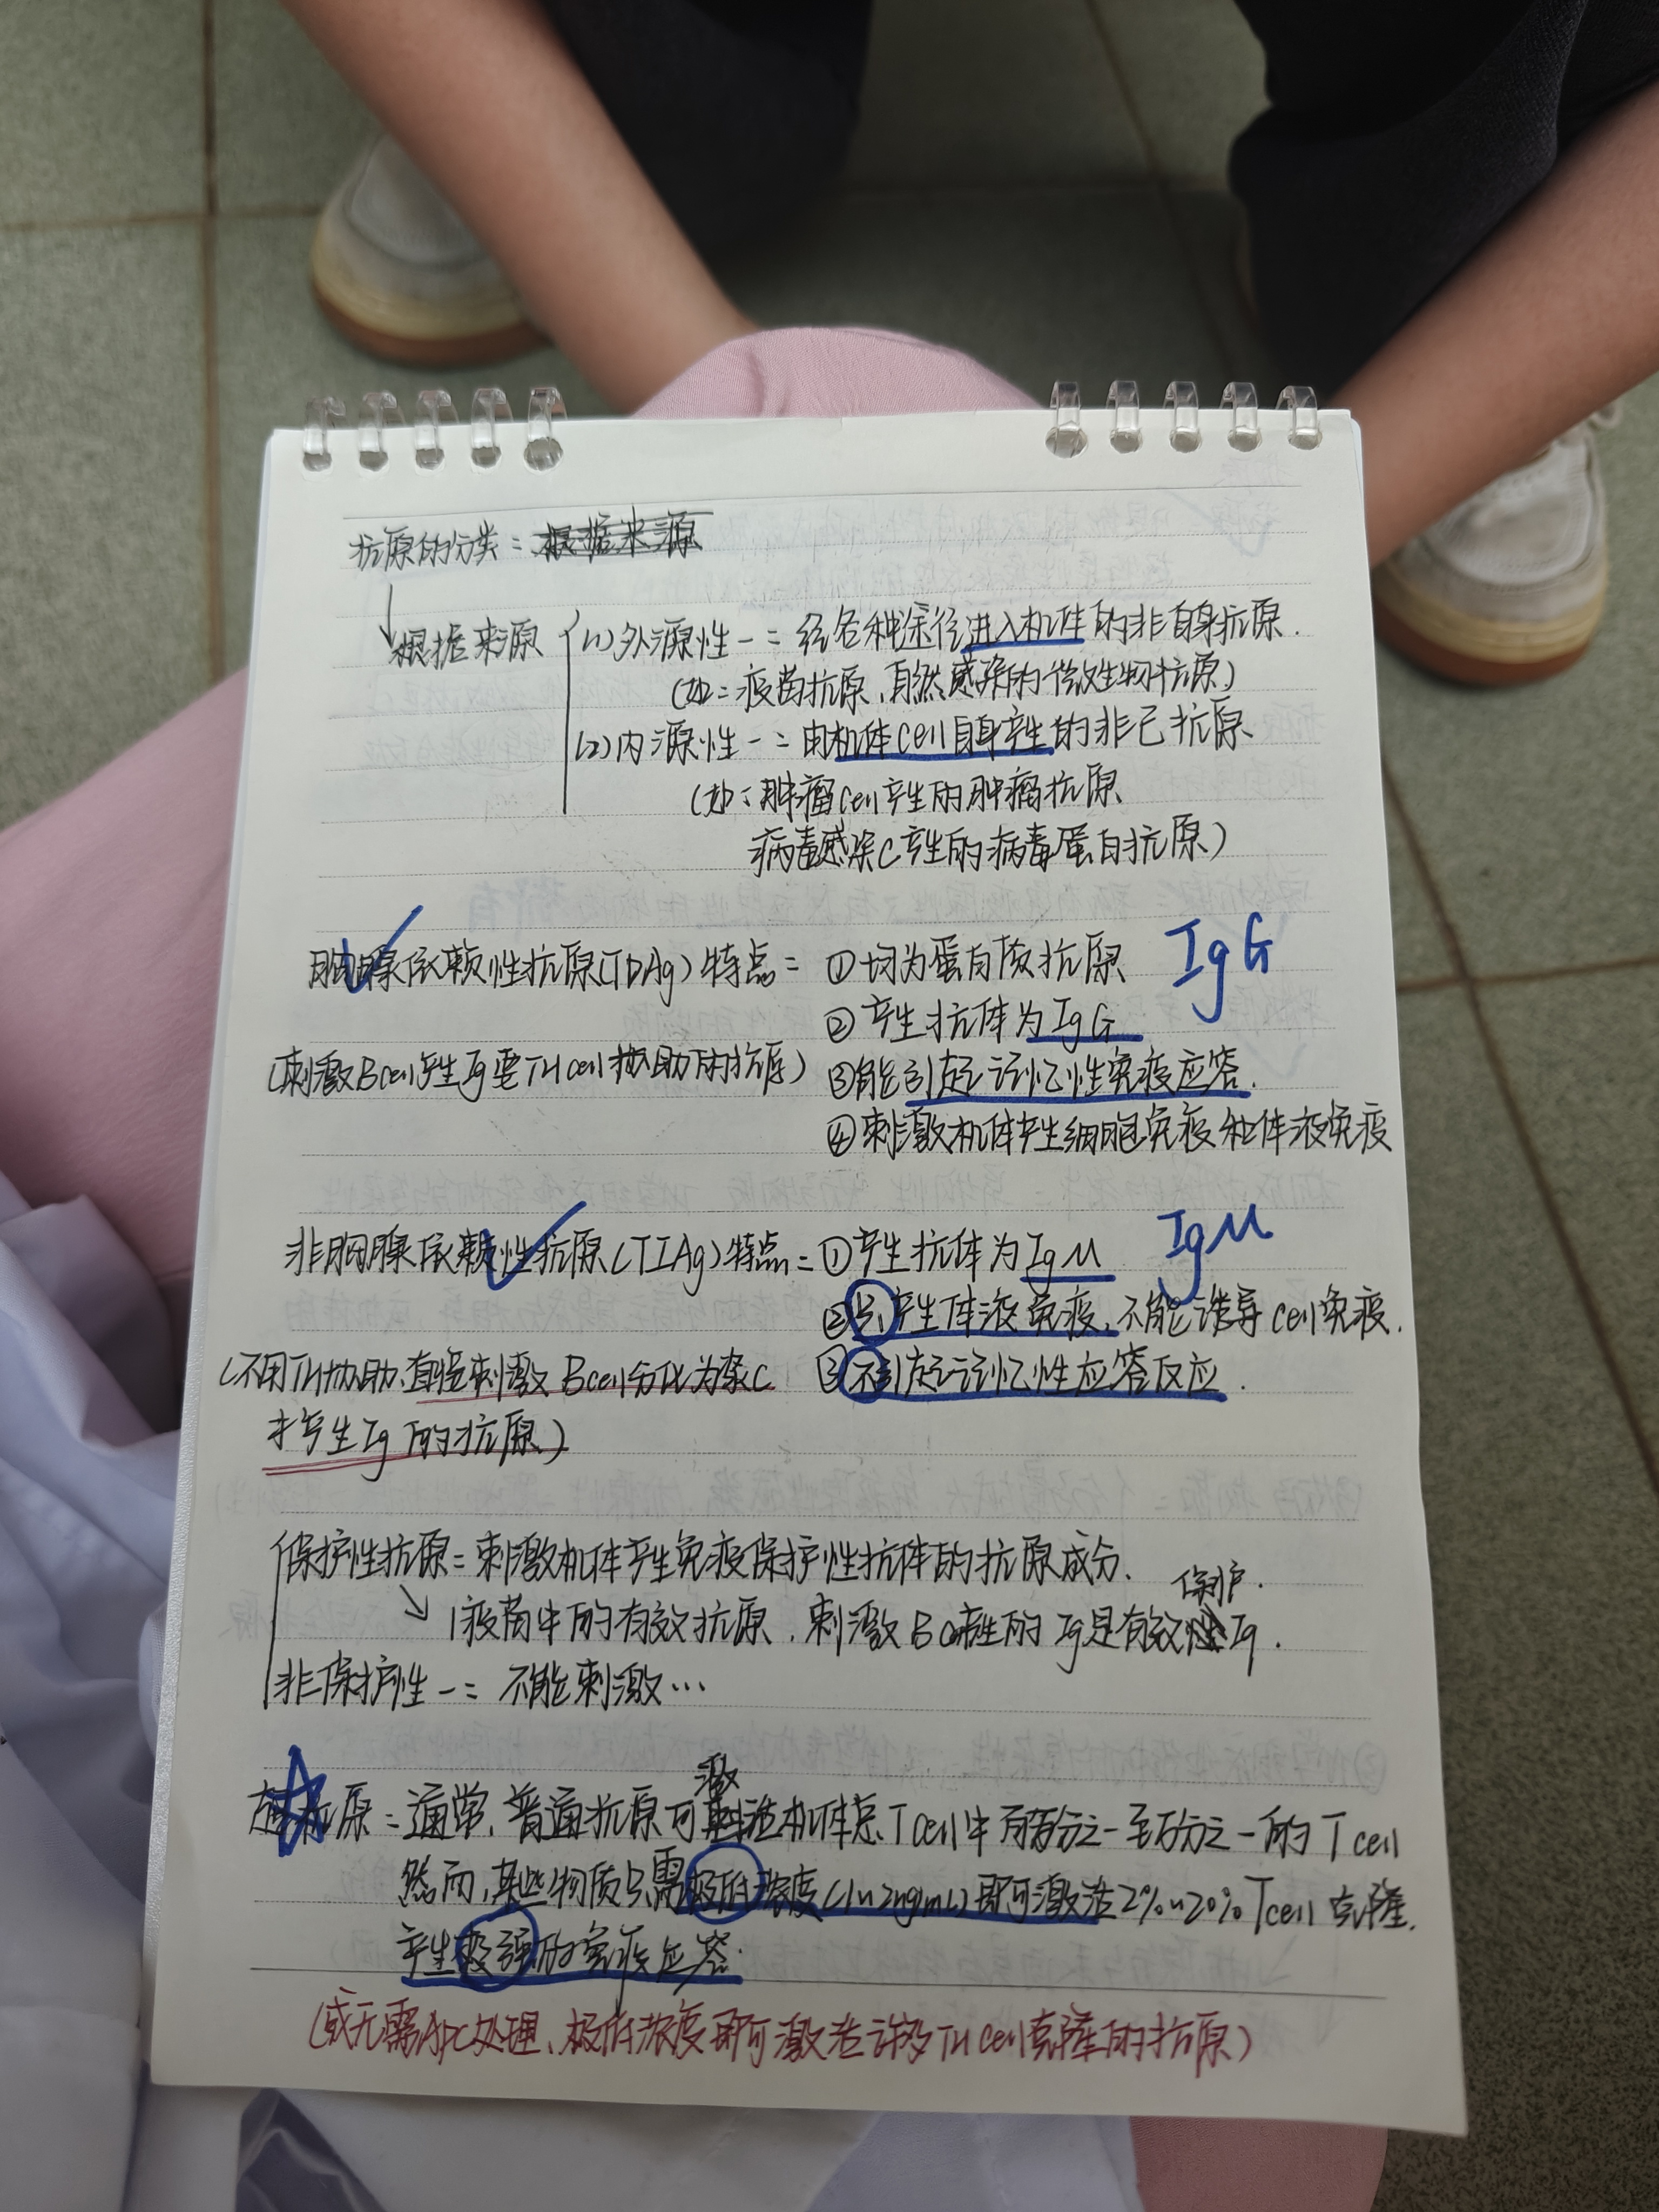 抗原的分类：根据来源
根据来源 (1)外源性-：经各种途径进入机性的非自身抗原.
(如：疫苗抗原、自然感染的微生物抗原)
(2)内源性-：由机体cell自身产生的非己抗原.
(如：肿瘤cell产生的肿瘤抗原
病毒感染C产生的病毒蛋白抗原)
胸腺依赖性抗原(TDAg)特点：①均为蛋白质抗原 IgG
②产生抗体为IgG
(刺激Bcell产生Ig要TH cell协助的抗原) ③能引起记忆性免疫应答.
④刺激机体产生细胞免疫和体液免疫
非胸腺依赖性抗原(TIAg)特点：①产生抗体为IgM IgM
②只产生体液免疫,不能诱导cell免疫.
(不用TH协助、直接刺激Bcell分化为浆C ③不引起记忆性应答反应.
才产生Ig的抗原)
保护性抗原：刺激机体产生免疫保护性抗体的抗原成分.
保护.
↘疫苗中的有效抗原,刺激BC产生的Ig是有效Ig.
非保护性-：不能刺激…
激
抗原：通常,普通抗原可活机体总Tcell中百万分之一至万分之一的Tcell
然而,某些物质只需极低浓度(1~2ng/mL)即可激活2%~20%Tcell克隆.
产生极强的免疫应答.
(或无需APC处理、极低浓度即可激活许多TH cell克隆的抗原)